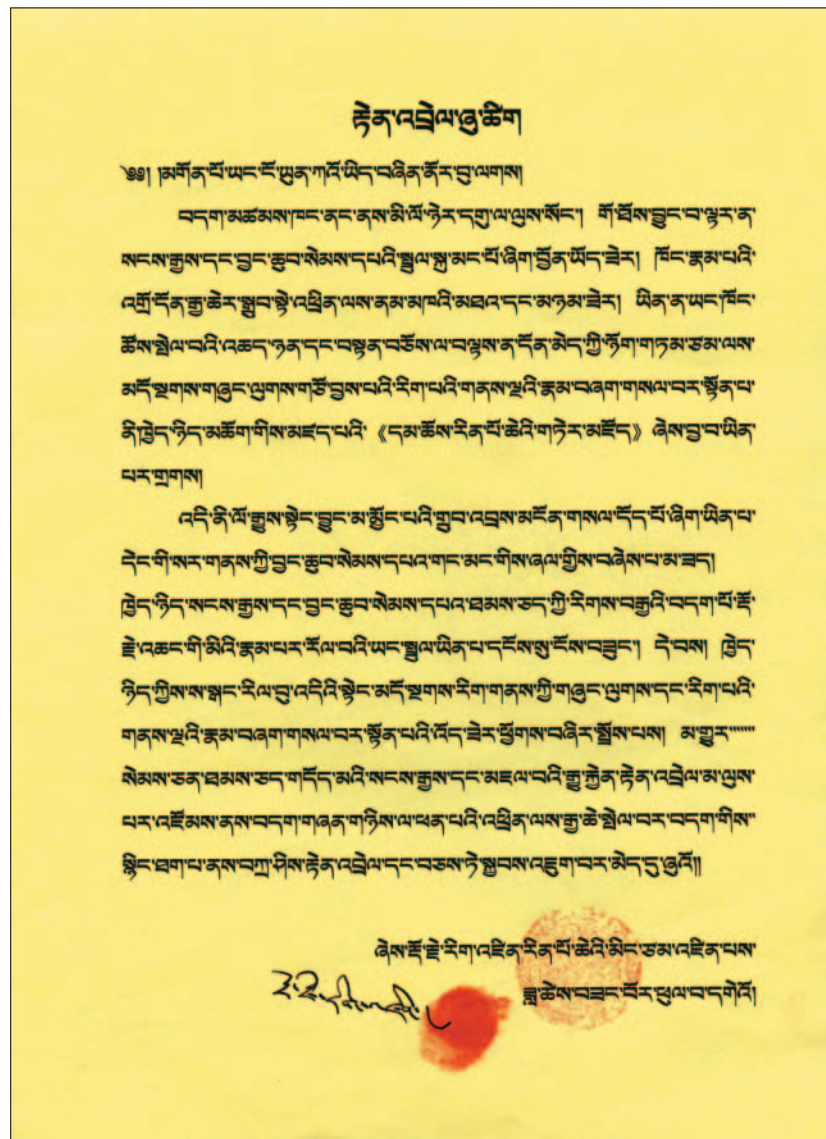 རྟེན་འབྲེལ་ཞུ་ཚིག
༄༅། །མགོན་པོ་ཡང་ངོ་ཡུན་ཀའོ་ཡིད་བཞིན་ནོར་བུ་ལགས།
བདག་མཚམས་ཁང་ནང་ནས་མི་ལོ་ཉེར་དགུ་ལ་ལུས་སོང་། གོ་ཐོས་བྱུང་བ་ལྟར་ན་
སངས་རྒྱས་དང་བྱང་ཆུབ་སེམས་དཔའི་སྤྲུལ་སྐུ་མང་པོ་ཞིག་བྱོན་ཡོད་ཟེར། ཁོང་རྣམ་པའི་
འགྲོ་དོན་རྒྱ་ཆེར་སྒྲུབ་སྟེ་འཕྲིན་ལས་ནམ་མཁའི་མཐའ་དང་མ་ཉམ་ཟེར། ཡིན་ན་ཡང་ཁོང་
ཚོས་སྤེལ་བའི་འཆད་ཉན་དང་བསྟན་བཅོས་ལ་བལྟས་ན་དོན་མེད་ཀྱི་ཉོག་གཏམ་ཙམ་ལས་
མདོ་སྔགས་གཞུང་ལུགས་གཙོ་བྱས་པའི་རིག་པའི་གནས་ལྔའི་རྣམ་བཞག་གསལ་བར་སྟོན་པ་
ནི་ཁྱེད་ཉིད་མཆོག་གིས་མཛད་པའི་《དམ་ཆོས་རིན་པོ་ཆེའི་གཏེར་མཛོད》ཞེས་བྱ་བ་ཡིན་
པར་གྲགས།
འདི་ནི་ལོ་རྒྱུས་སྟེང་བྱུང་མ་མྱོང་བའི་གྲུབ་འབྲས་མངོན་གསལ་དོད་པོ་ཞིག་ཡིན་པ་
དེང་གི་སར་གནས་ཀྱི་བྱང་ཆུབ་སེམས་དཔའ་གང་མང་གིས་ཞལ་གྱིས་བཞེས་པ་མ་ཟད།
ཁྱེད་ཉིད་སངས་རྒྱས་དང་བྱང་ཆུབ་སེམས་དཔའ་ཐམས་ཅད་ཀྱི་རིགས་བརྒྱའི་བདག་པོ་རྡོ་
རྗེ་འཆང་གི་མིའི་རྣམ་པར་རོལ་བའི་ཡང་སྤྲུལ་ཡིན་པ་དངོས་སུ་ངོས་བཟུང་། དེ་བས། ཁྱེད་
ཉིད་ཀྱིས་ས་སྒང་རིལ་བུ་འདིའི་སྟེང་མདོ་སྔགས་རིག་གནས་ཀྱི་གཞུང་ལུགས་དང་རིག་པའི་
གནས་ལྔའི་རྣམ་བཞག་གསལ་བར་སྟོན་པའི་འོད་ཟེར་ཕྱོགས་བཞིར་སྤྲོས་པས། མ་གྱུར་
སེམས་ཅན་ཐམས་ཅད་གདོད་མའི་སངས་རྒྱས་དང་མཇལ་བའི་རྒྱུ་རྐྱེན་རྟེན་འབྲེལ་མ་ལུས་
པར་འཛོམས་ནས་བདག་གཞན་གཉིས་ལ་ཕན་པའི་འཕྲིན་ལས་རྒྱ་ཆེ་སྤེལ་བར་བདག་གིས་
སྙིང་ཐག་པ་ནས་བཀྲ་ཤིས་རྟེན་འབྲེལ་དང་བཅས་ཏེ་སྐྱབས་འཇུག་བར་མེད་དུ་ཞུའོ།།
ཞེས་རྡོ་རྗེ་རིག་འཛིན་རིན་པོ་ཆེའི་མིང་ཙམ་འཛིན་པས་
ཟླ་ཚེས་བཟང་པོར་ཕུལ་བ་དགེའོ།